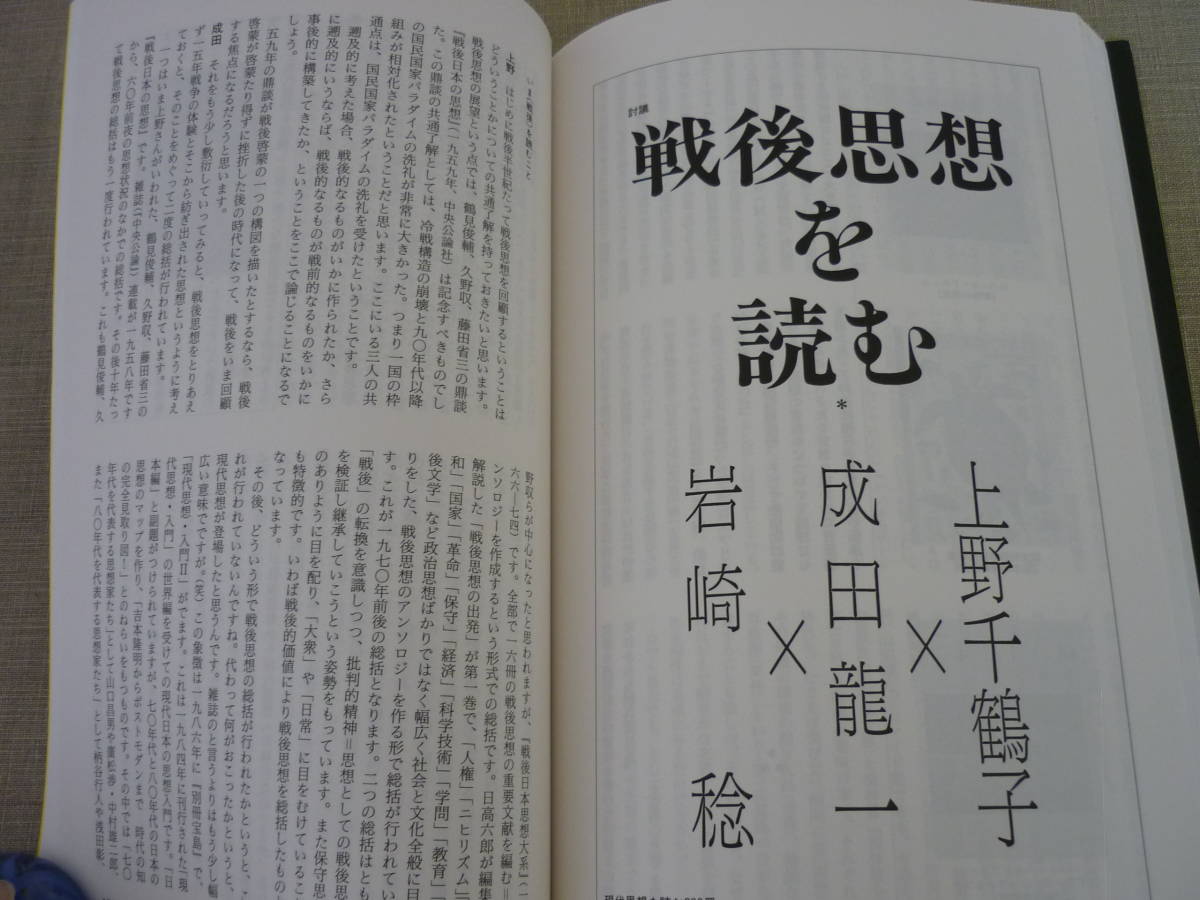 討議
戦後思想
を
読む
*
上野千鶴子
×
成田龍一
×
岩崎 稔
上野 はじめに戦後半世紀たって戦後思想を回顧するということは
どういうことかについての共通了解を持っておきたいと思います。
戦後思想の展望という点では、鶴見俊輔、久野収、藤田省三の鼎談
『戦後日本の思想』(一九五九年、中央公論社)は記念すべきものでし
た。この鼎談の共通了解としては、冷戦構造の崩壊と九〇年代以降
の国民国家パラダイムの洗礼が非常に大きかった。つまり一国の枠
組みが相対化されたということだと思います。ここにいる三人の共
通点は、国民国家パラダイムの洗礼を受けたということです。
遡及的に考えた場合、戦後的なるものがいかに作られたか、さら
に遡及的にいうならば、戦後的なるものが戦前的なるものをいかに
事後的に構築してきたか、ということをここで論じることになるで
しょう。
五九年の鼎談が戦後啓蒙の一つの構図を描いたとするなら、戦後
啓蒙が啓蒙たり得ずに挫折した後の時代になって、戦後をいま回顧
する焦点になるだろうと思います。
成田 それをもう少し敷衍していってみると、戦後思想をとりあえ
ず一五年戦争の体験とそこから紡ぎ出された思想というように考え
ておくと、そのことをめぐって二度の総括が行われています。
一つはいま上野さんがいわれた、鶴見俊輔、久野収、藤田省三の
『戦後日本の思想』です。雑誌(『中央公論』)連載が一九五八年です
から、六〇年前夜の思想状況のなかでの総括です。その後十年たっ
て戦後思想の総括はもう一度行われています。これも鶴見俊輔、久
野収らが中心になったと思われますが、『戦後日本思想大系』(一
六六―七四)です。全部で一六冊の戦後思想の重要文献を編む=
ンソロジーを作成するという形式での総括です。日高六郎が編集
解説した「戦後思想の出発」が第一巻で、「人権」「ニヒリズム」
和」「国家」「革命」「保守」「経済」「科学技術」「学問」「教育」
後文学」など政治思想ばかりではなく幅広く社会と文化全般に目
りをした、戦後思想のアンソロジーを作る形で総括が行われてい
す。これが一九七〇年前後の総括となります。二つの総括はとも
「戦後」の転換を意識しつつ、批判的精神=思想としての戦後思
を検証し継承していこうという姿勢をもっています。また保守思
のありように目を配り、「大衆」や「日常」に目をむけているこ
も特徴的です。いわば戦後的価値により戦後思想を総括したもの
なっています。
その後、どういう形で戦後思想の総括が行われたかというと、
れが行われていないんですね。代わって何がおこったかというと、
現代思想が登場したと思うんです。雑誌のと言うよりはもう少し
広い意味でですが。(笑)この象徴は一九八六年に『別冊宝島』で、
「現代思想・入門Ⅱ」がでます。これは一九八四年に刊行された「現
代思想・入門」の世界編を受けての現代日本の思想入門です。「日
本編」と副題がつけられていますが、七〇年代と八〇年代の日本の
思想のマップを作り、「吉本隆明からポストモダンまで 時代の知
の完全見取り図!」とのねらいをもつものです。その中では「七〇
年代を代表する思想家たち」として山口昌男や廣松渉・中村雄二郎、
また「八〇年代を代表する思想家たち」として柄谷行人や浅田彰、